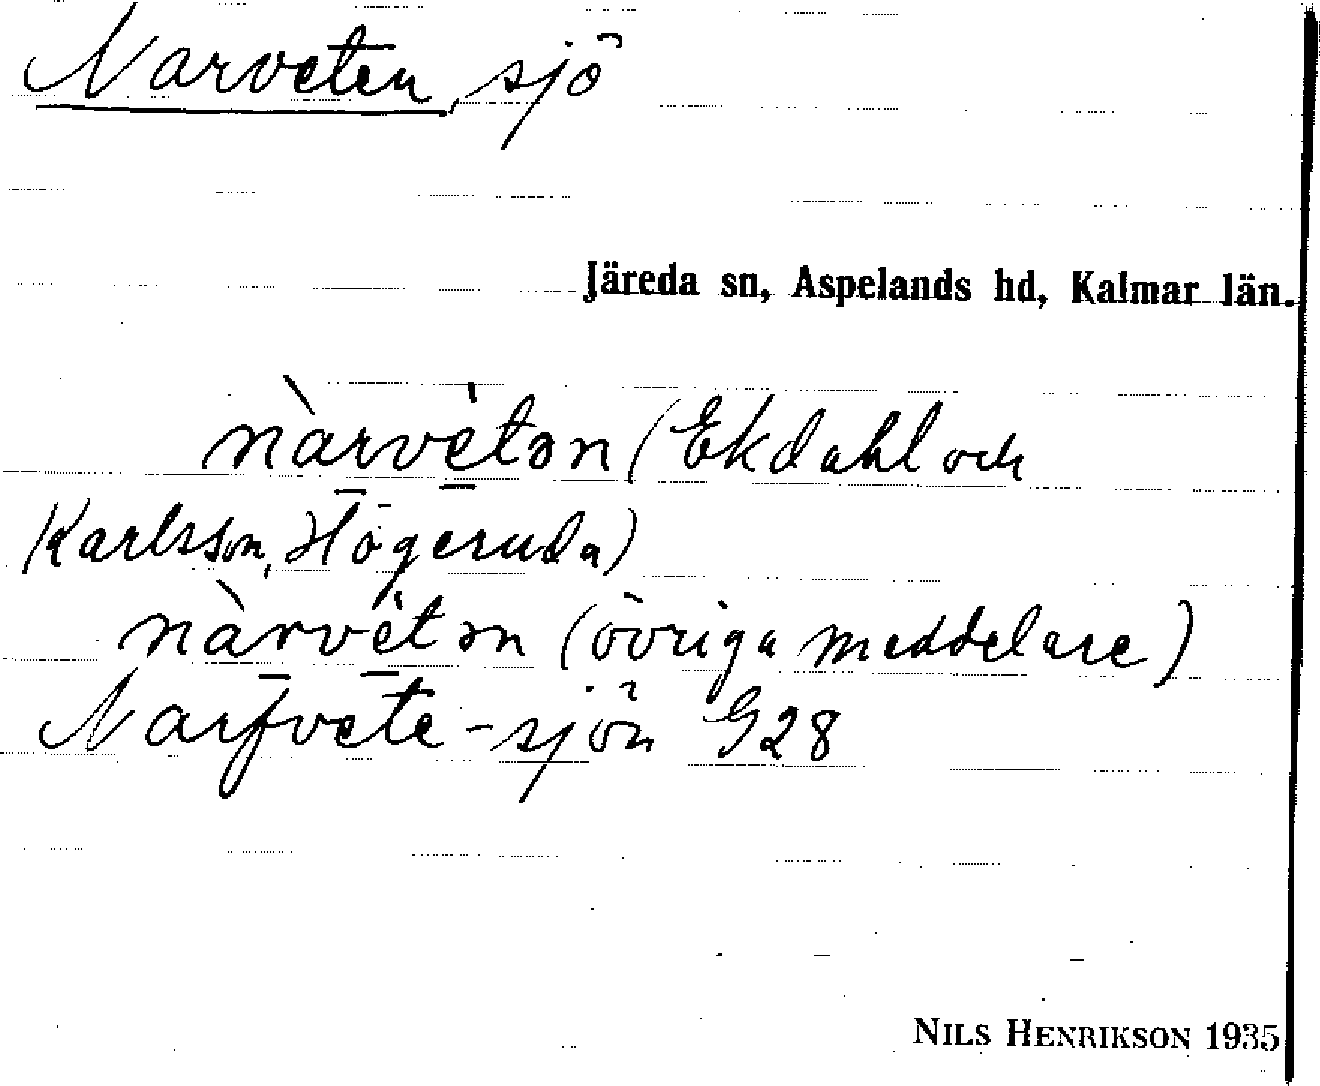 Narveten, sjö
Järeda sn, Aspelands hd, Kalmar län.
nàrvètən (Ekdahl och
Karlsson, Högeruda)
nàrvètən (övriga meddelare)
Narfvete-sjön G28
NILS HENRIKSON 1935